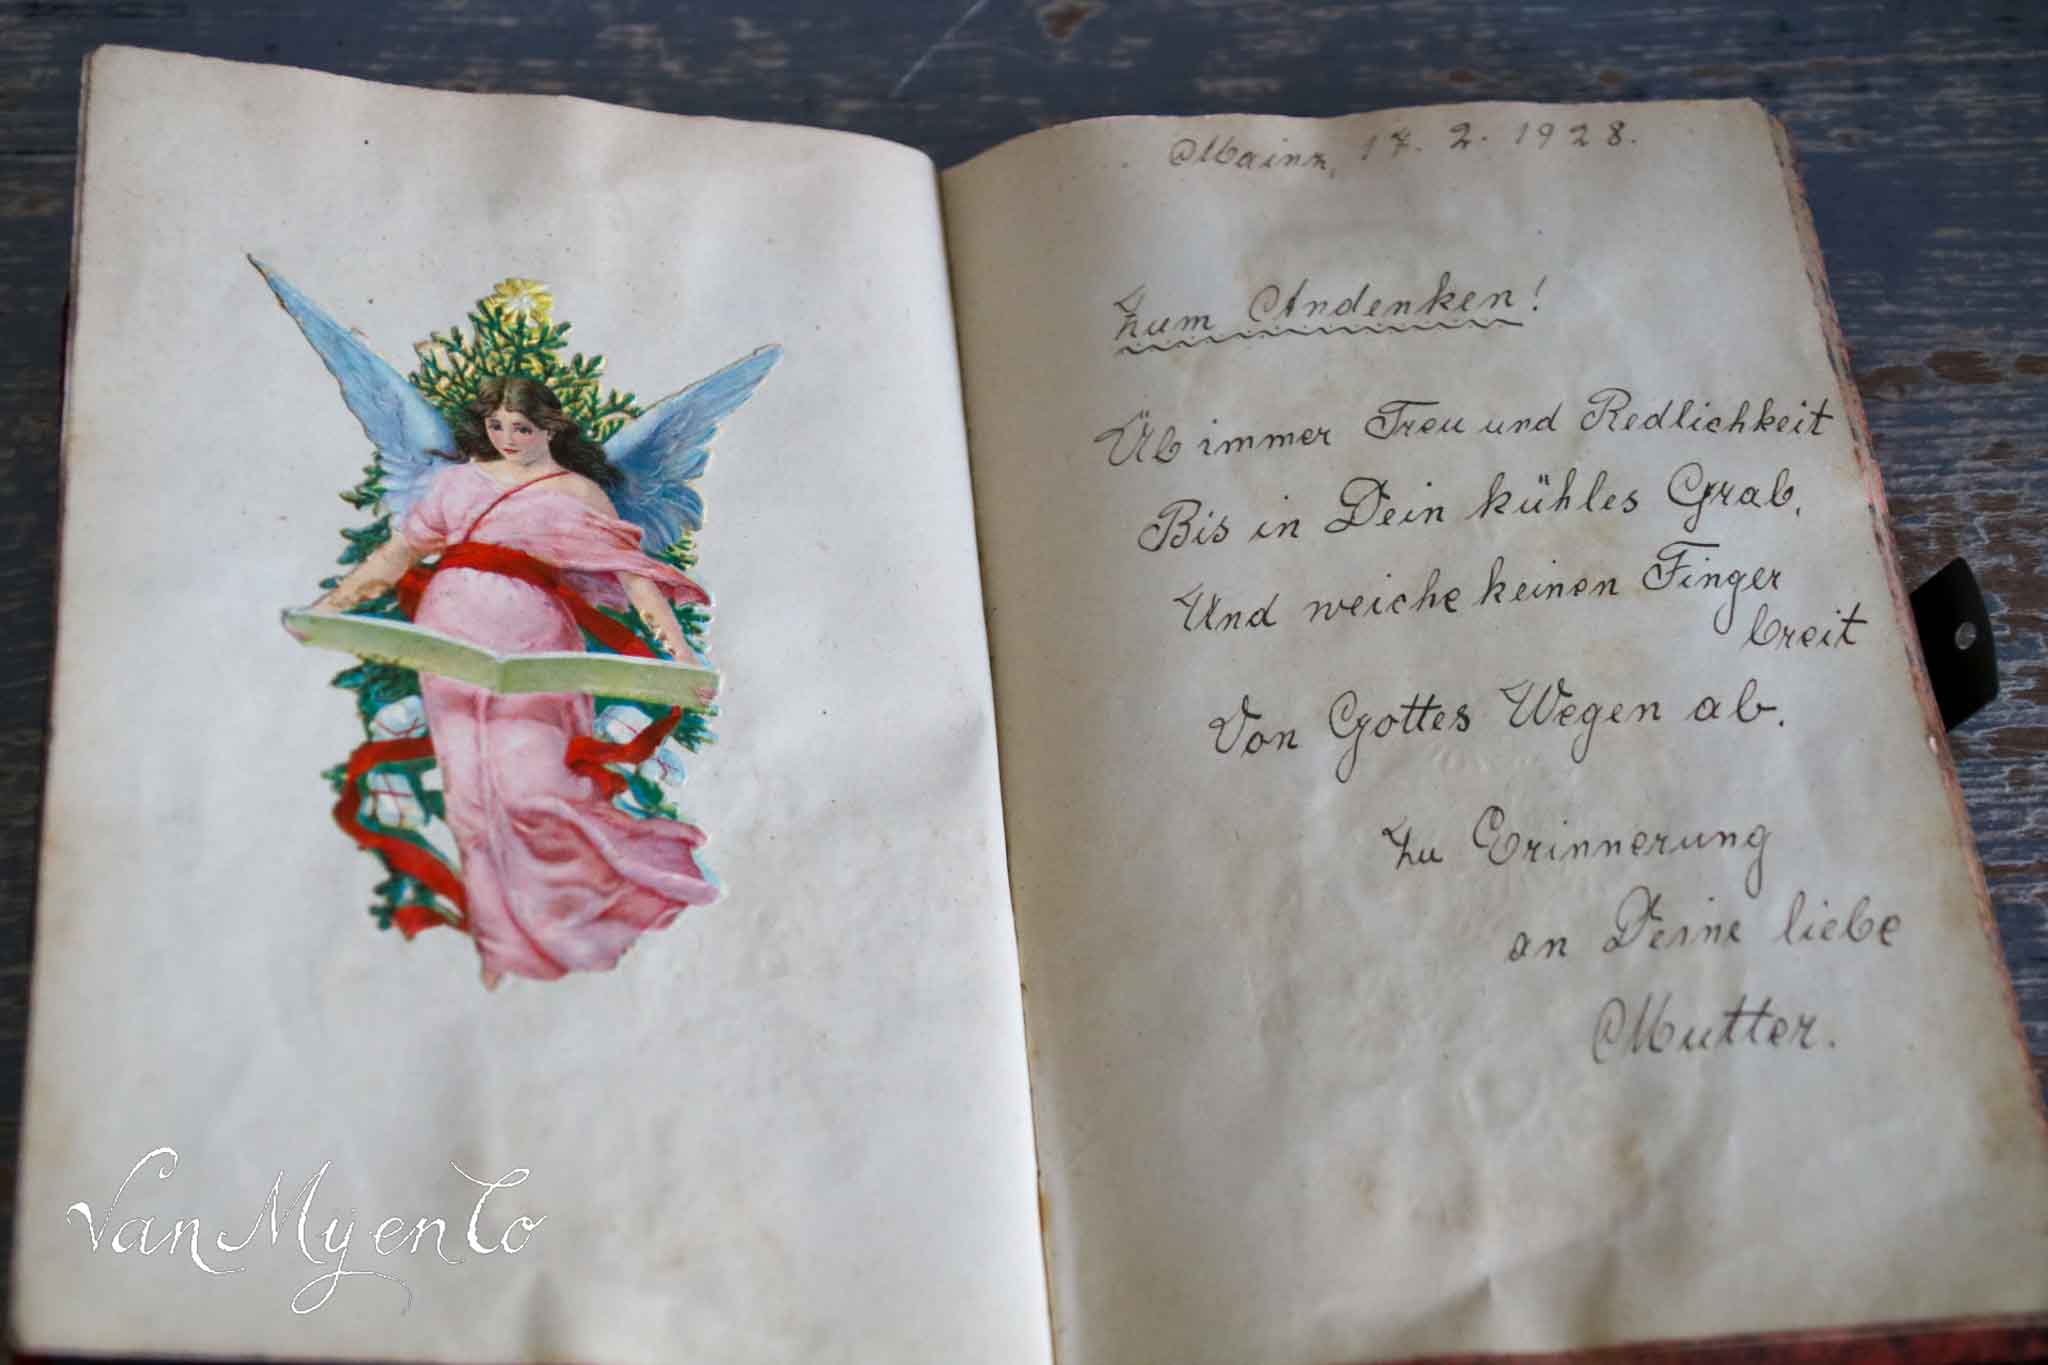 Mainz, 17. 2. 1928.
Zum Andenken!
Üb immer Treu und Redlichkeit
Bis in Dein kühles Grab,
Und weiche keinen Finger
breit
Von Gottes Wegen ab.
Zu Erinnerung
an Deine liebe
Mutter.
VanMyenCo